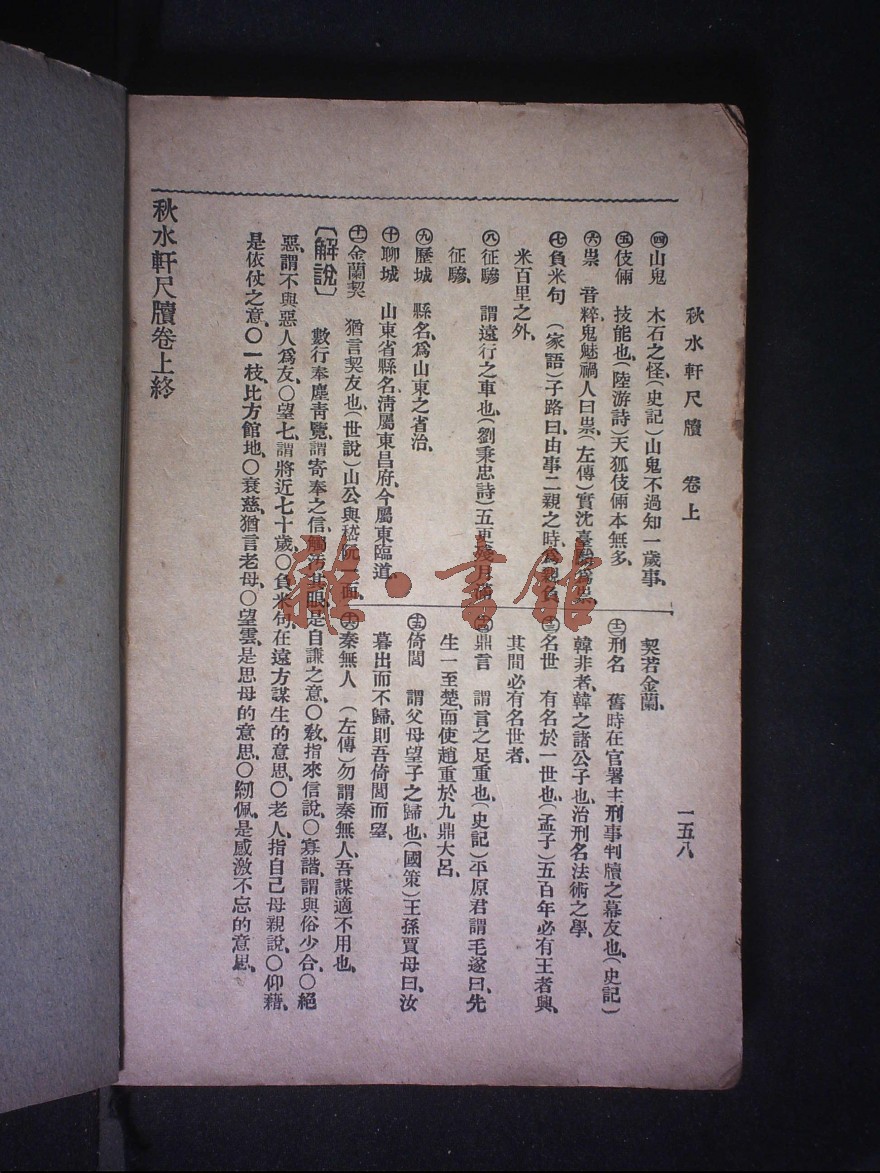 秋水軒尺牘　卷上
一五八
㊃山鬼　木石之怪、(史記)山鬼不過知一歲事、
㊄伎倆　技能也、(陸游詩)天狐伎倆本無多、
㊅祟　音粹、鬼魅禍人曰祟、(左傳)實沈臺駘爲祟、
㊆負米句　(家語)子路曰、由事二親之時、爲親負
米百里之外、
㊇征驂　謂遠行之車也、(劉秉忠詩)五更殘月
征驂、
㊈歷城　縣名、爲山東之省治、
㊉聊城　山東省縣名、淸屬東昌府、今屬東臨道、
⑪金蘭契　猶言契友也、(世說)山公與嵇阮一面、
契若金蘭、
⑫刑名　舊時在官署主刑事判牘之幕友也、(史記)
韓非者、韓之諸公子也、治刑名法術之學、
⑬名世　有名於一世也、(孟子)五百年必有王者興、
其間必有名世者、
⑭鼎言　謂言之足重也、(史記)平原君謂毛遂曰、先
生一至楚、而使趙重於九鼎大呂、
⑮倚閭　謂父母望子之歸也、(國策)王孫賈母曰、汝
暮出而不歸、則吾倚閭而望、
⑯秦無人　(左傳)勿謂秦無人、吾謀適不用也、
〔解說〕　數行奉塵靑覽、謂寄奉之信、觸汚其眼、是自謙之意、○敎、指來信說、○寡諧、謂與俗少合、○絕
惡、謂不與惡人爲友、○望七、謂將近七十歲、○負米句、在遠方謀生的意思、○老人、指自己母親說、○仰藉、
是依仗之意、○一枝、比方館地、○衰慈、猶言老母、○望雲、是思母的意思、○紉佩、是感激不忘的意思、
秋水軒尺牘卷上終
雜·書館